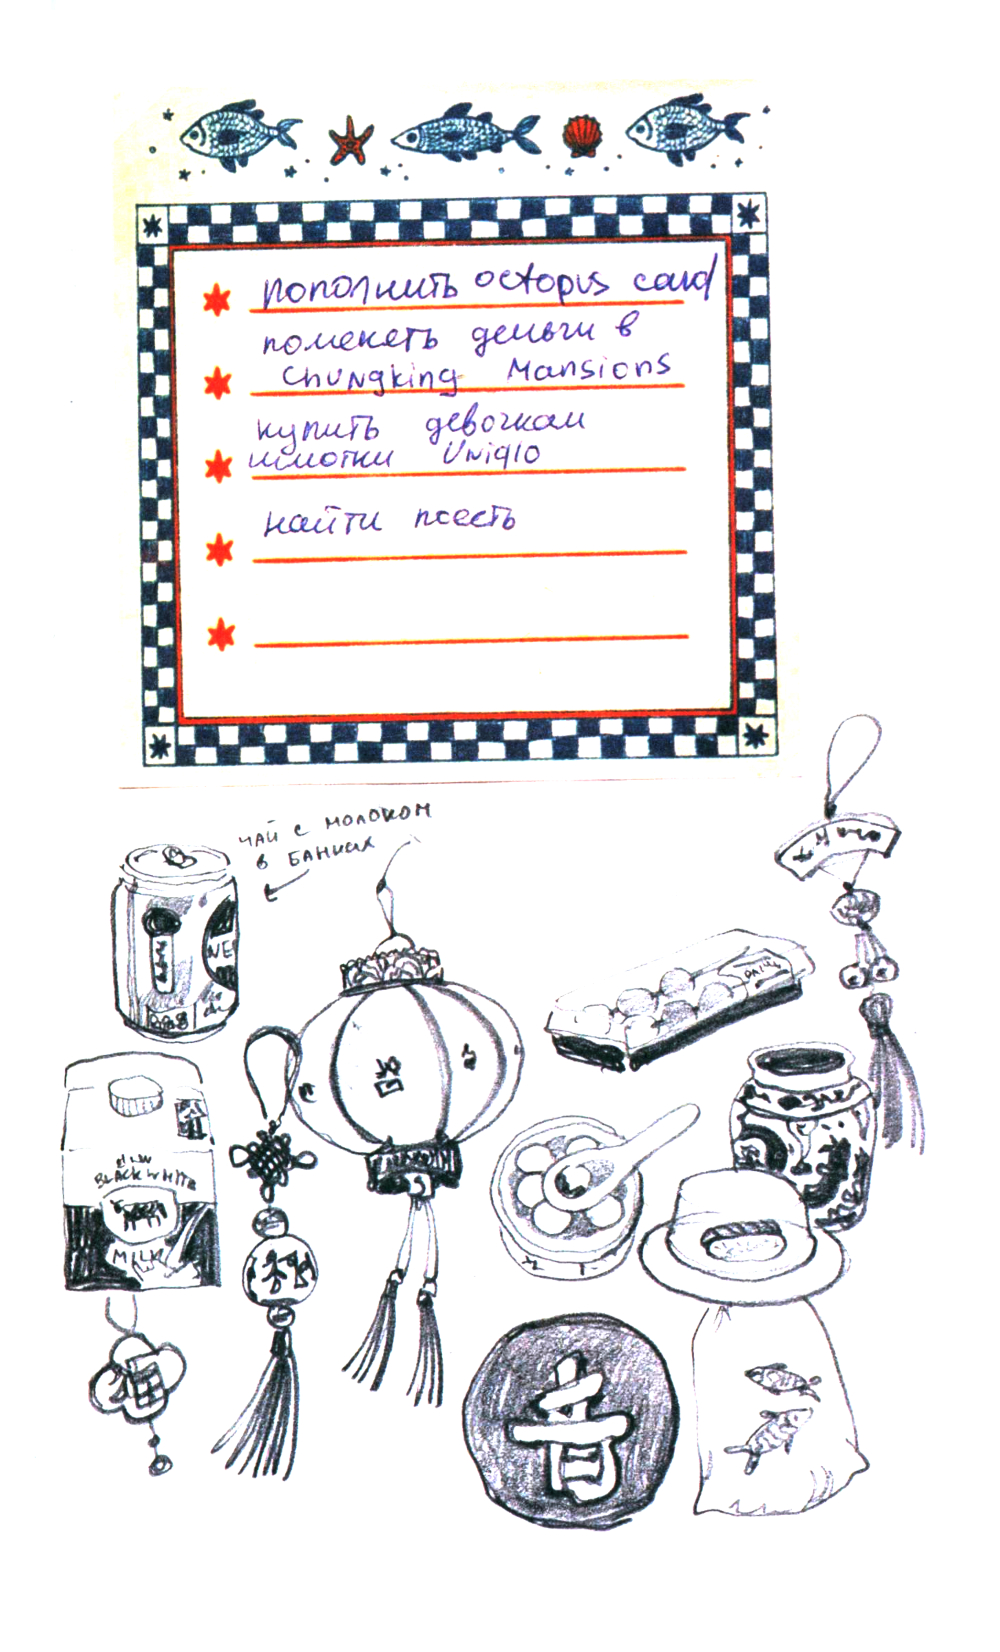 пополнить octopus card
поменять деньги в
Chungking Mansions
купить девочкам
шмотки Uniqlo
найти поесть
чай с молоком
в банках
NE
BLACK WHITE
MILK
香